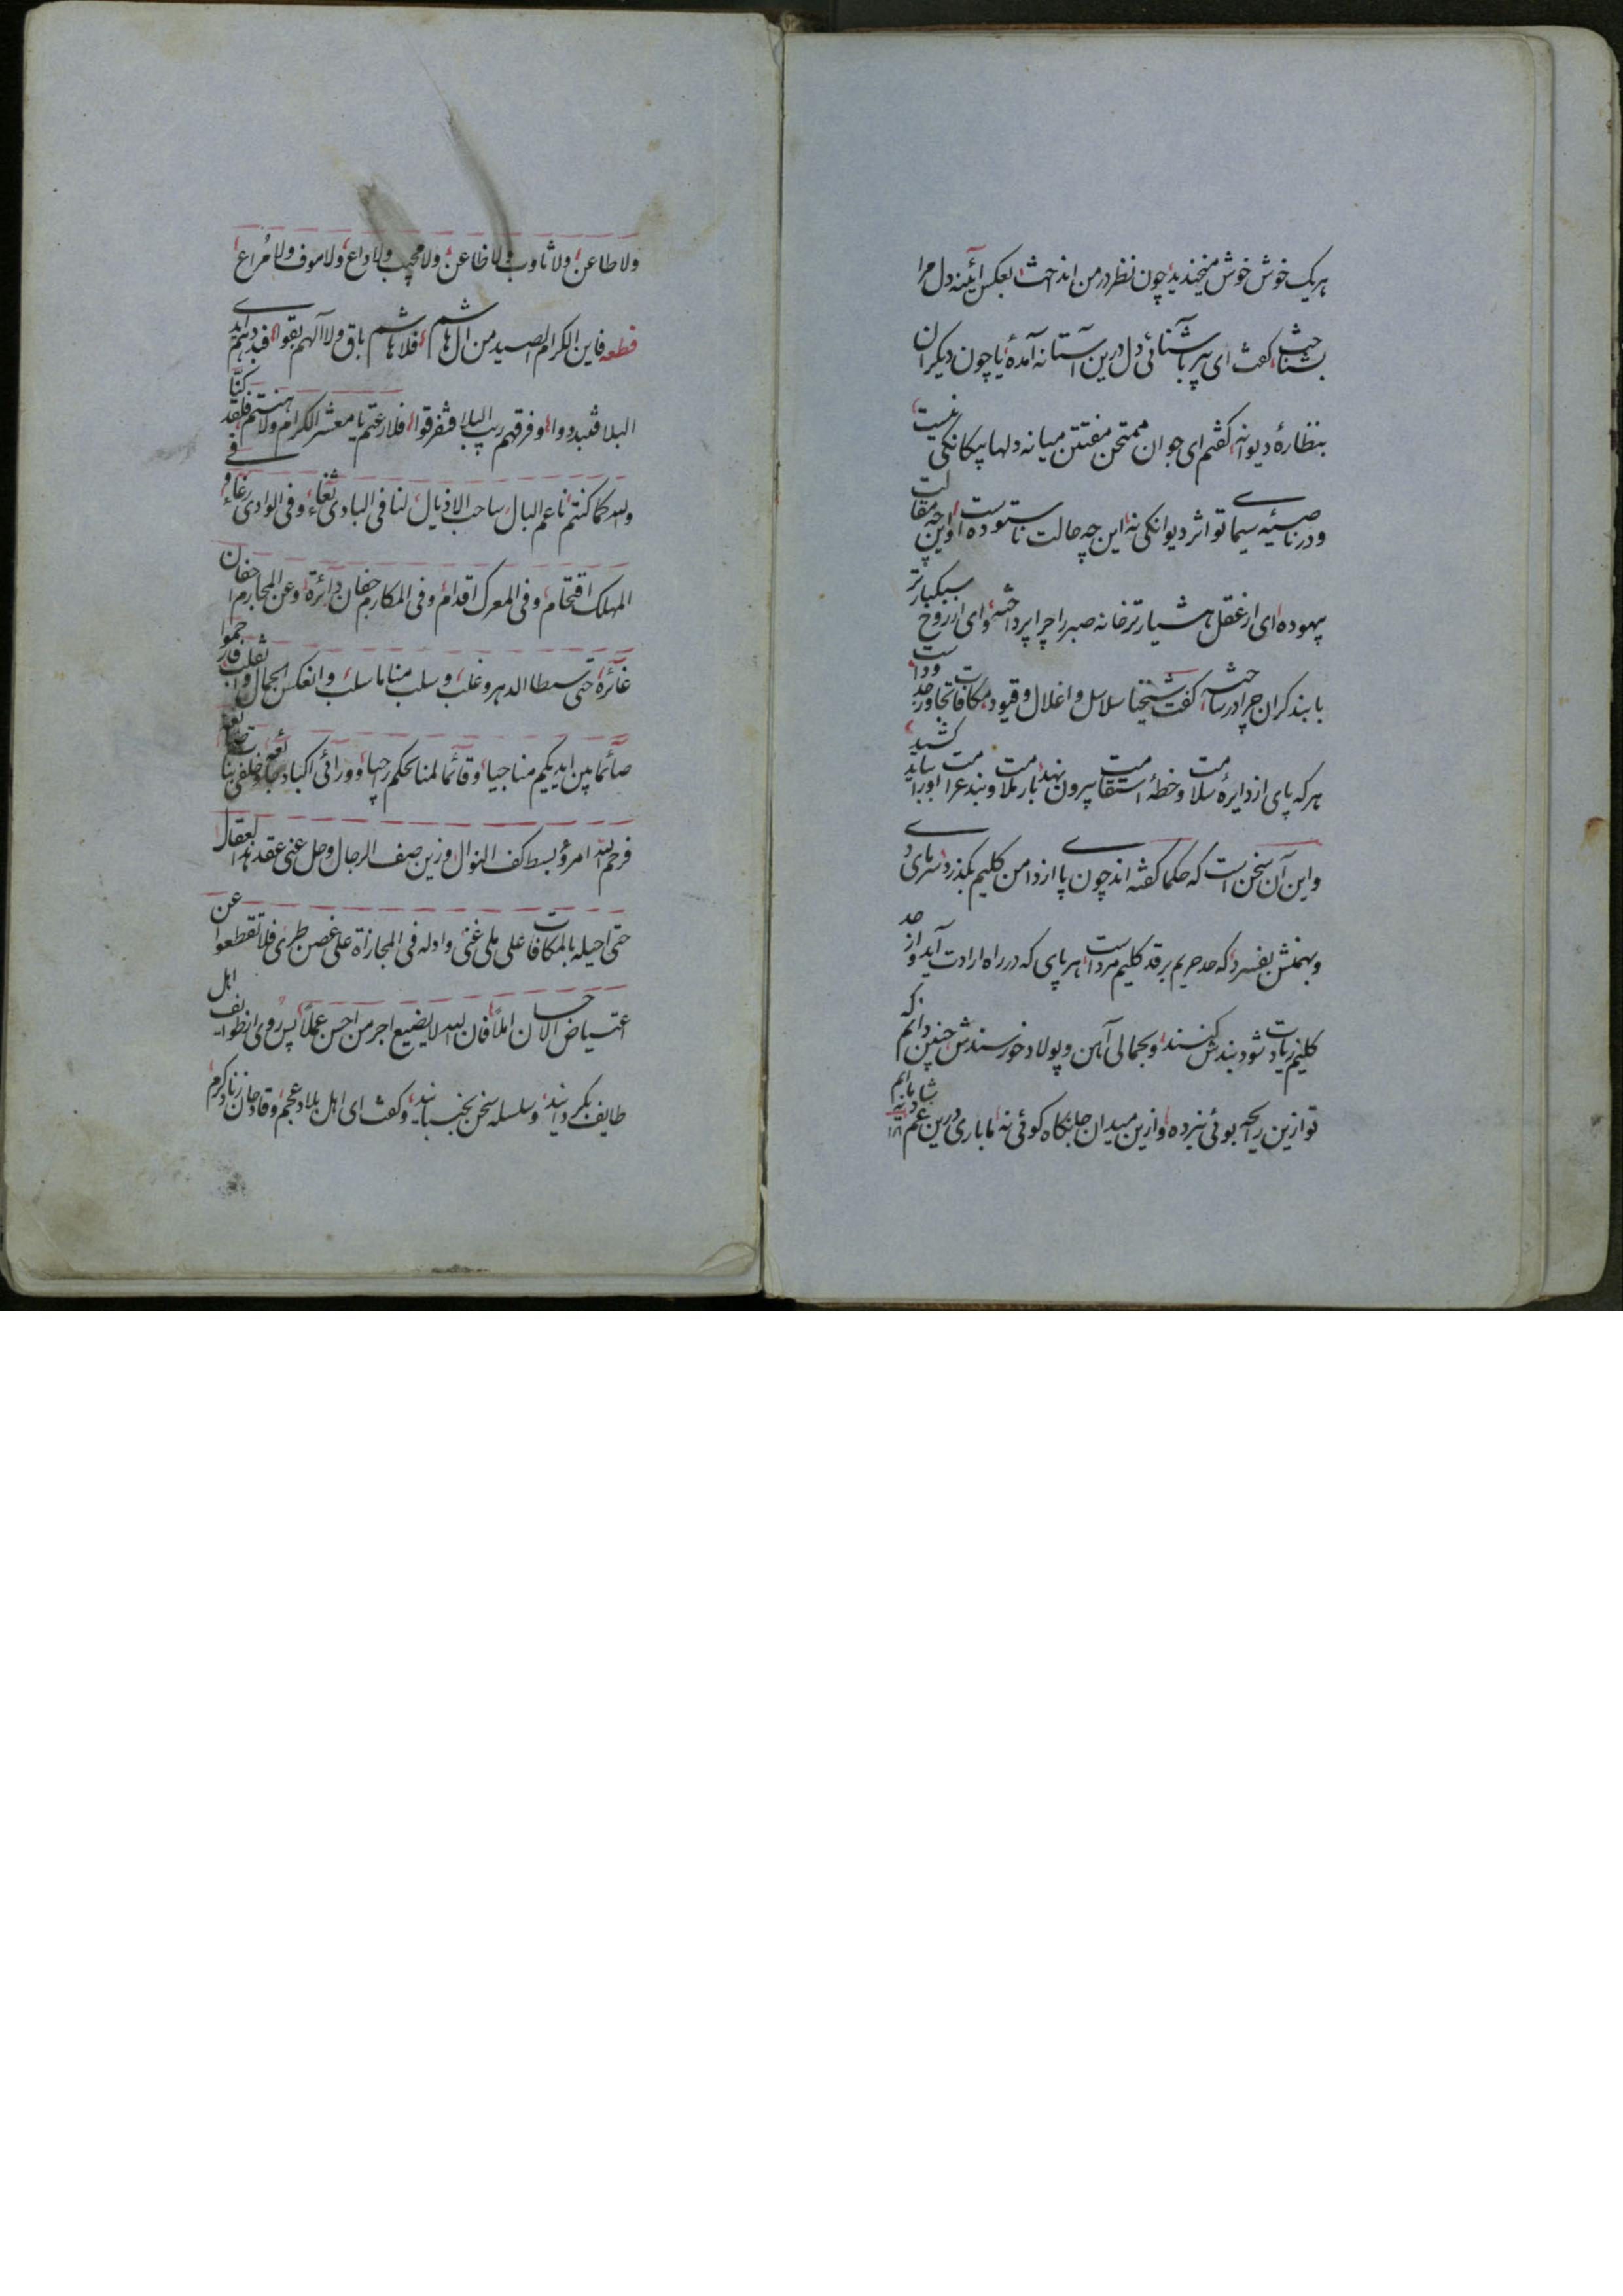 هریک خوش خوش میخندید چون نظر در من انداخت بعکس آئینه دل مرا
بشناخت گفت ای پیر بآشنائی دل درین آستانه آمدهٔ یا چون دیگران
بنظارهٔ دیوانه گفتم ای جوان ممتحن مفتتن میانه دلها بیکانکی نیست
و در ناصیهٔ سیمای تو اثر دیوانکی نه این چه حالت ناستوده است و این چه مقالت
بیهوده ای از عقل هشیارتر خانه صبر را چرا پرداختهٔ و ای از روح سبکبارتر
با بند کران چرا درساخته کفت شیخنا سلاسل و اغلال و قیود مکافات تجاوز حدودست
هر که پای از دایرهٔ سلامت و خطهٔ استقامت بیرون نهد بار ملامت و بند غرامت او را بباید کشید
و این آن سخن است که حکما کفته اند چون پا از دامن کلیم بکذرد سرمای دی
و بهمنش بفسرد که حد حریم برقد کلیم مردست هر پای که در راه ارادت آید و از حد
کلیم زیادت شود بندش کنند و بحمالی آهن و پولاد خورسندش چنین دانم که
تو ازین ریحه بوئی نبرده و ازین میدان جانکاه کوئی نه ما باری درین غم شادمانیم
ولا طاعن ولا ثاوب ولا ظاعن ولا مجیب ولا داع ولا موف ولا مراع
قطعه فاین الکرام الصید من آل هاشم فلا هاشم باق ولا آلهم بقوا فبددهم ایدی
البلا فتبددوا وفرقهم ریب البلا فتفرقوا فلا رعتم یا معشر الکرام ولا هنتم فلقد کنّا
والله کما کنتم ناعم البال ساحب الاذیال لنا فی البادی ثغاء وفی الوادی رغاء وفی
المهلک اقتحام وفی المعرک اقدام وفی المکارم جفان دائرة وعن المحارم اجفان
غائرة حتی سطا الدهر وغلب وسلب منا ما سلب وانعکس الجمال وانقلب فارحموا
صائما بین ایدیکم مناجیا وقائما لمنالحکم راجیا وورائی اکباد جائعة وخلفی بنات ضائعة
فرحم الله امرؤ بسط کف النوال وزین صف الرجال وحل عنی عقد هذا العقال
حتی احیله بالمکافات علی ملی غنی وادله فی المجازاة علی غصن طری فلا تقطعوا عن
اعتیاض الاحسان املا فان الله لا یضیع اجر من احسن عملا پس روی از طوایف اهل
طایف بکردانید و سلسله سخن بجنبانید و کفت ای اهل بلاد عجم و قادحان زناد کرم